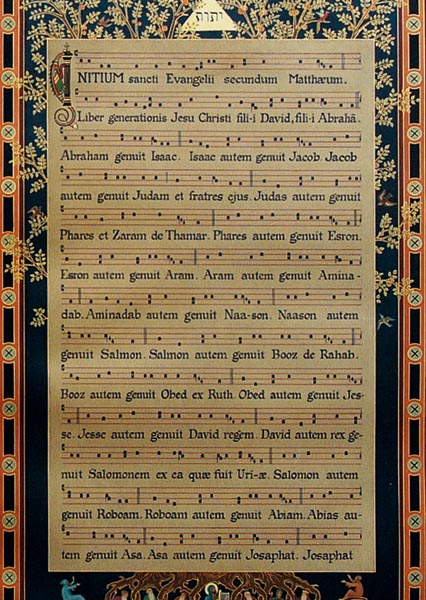 יהוה
INITIUM sancti Evangelii secundum Matthæum.
Liber generationis Jesu Christi fili-i David, fili-i Abrahã.
Abraham genuit Isaac. Isaac autem genuit Jacob. Jacob
autem genuit Judam et fratres ejus. Judas autem genuit
Phares et Zaram de Thamar. Phares autem genuit Esron.
Esron autem genuit Aram. Aram autem genuit Amina-
dab. Aminadab autem genuit Naa-son. Naason autem
genuit Salmon. Salmon autem genuit Booz de Rahab.
Booz autem genuit Obed ex Ruth. Obed autem genuit Jes-
se. Jesse autem genuit David regem. David autem rex ge-
nuit Salomonem ex ea quæ fuit Uri-æ. Salomon autem
genuit Roboam. Roboam autem genuit Abiam. Abias au-
tem genuit Asa. Asa autem genuit Josaphat. Josaphat